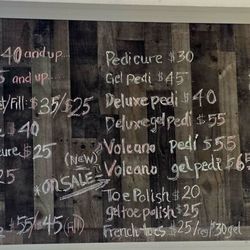 40 and up...
5 and up...
st/Fill: $35/$25
$40
cure $25
25
(NEW)
*ON SALE*
$55/$45 (Fill)
Pedicure $30
Gel pedi $45
Deluxe pedi $40
Deluxe gel pedi $55
Volcano pedi $55
Volcano gel pedi $65
Toe Polish $20
gel toe polish $25
French Toes $25/reg $30 gel